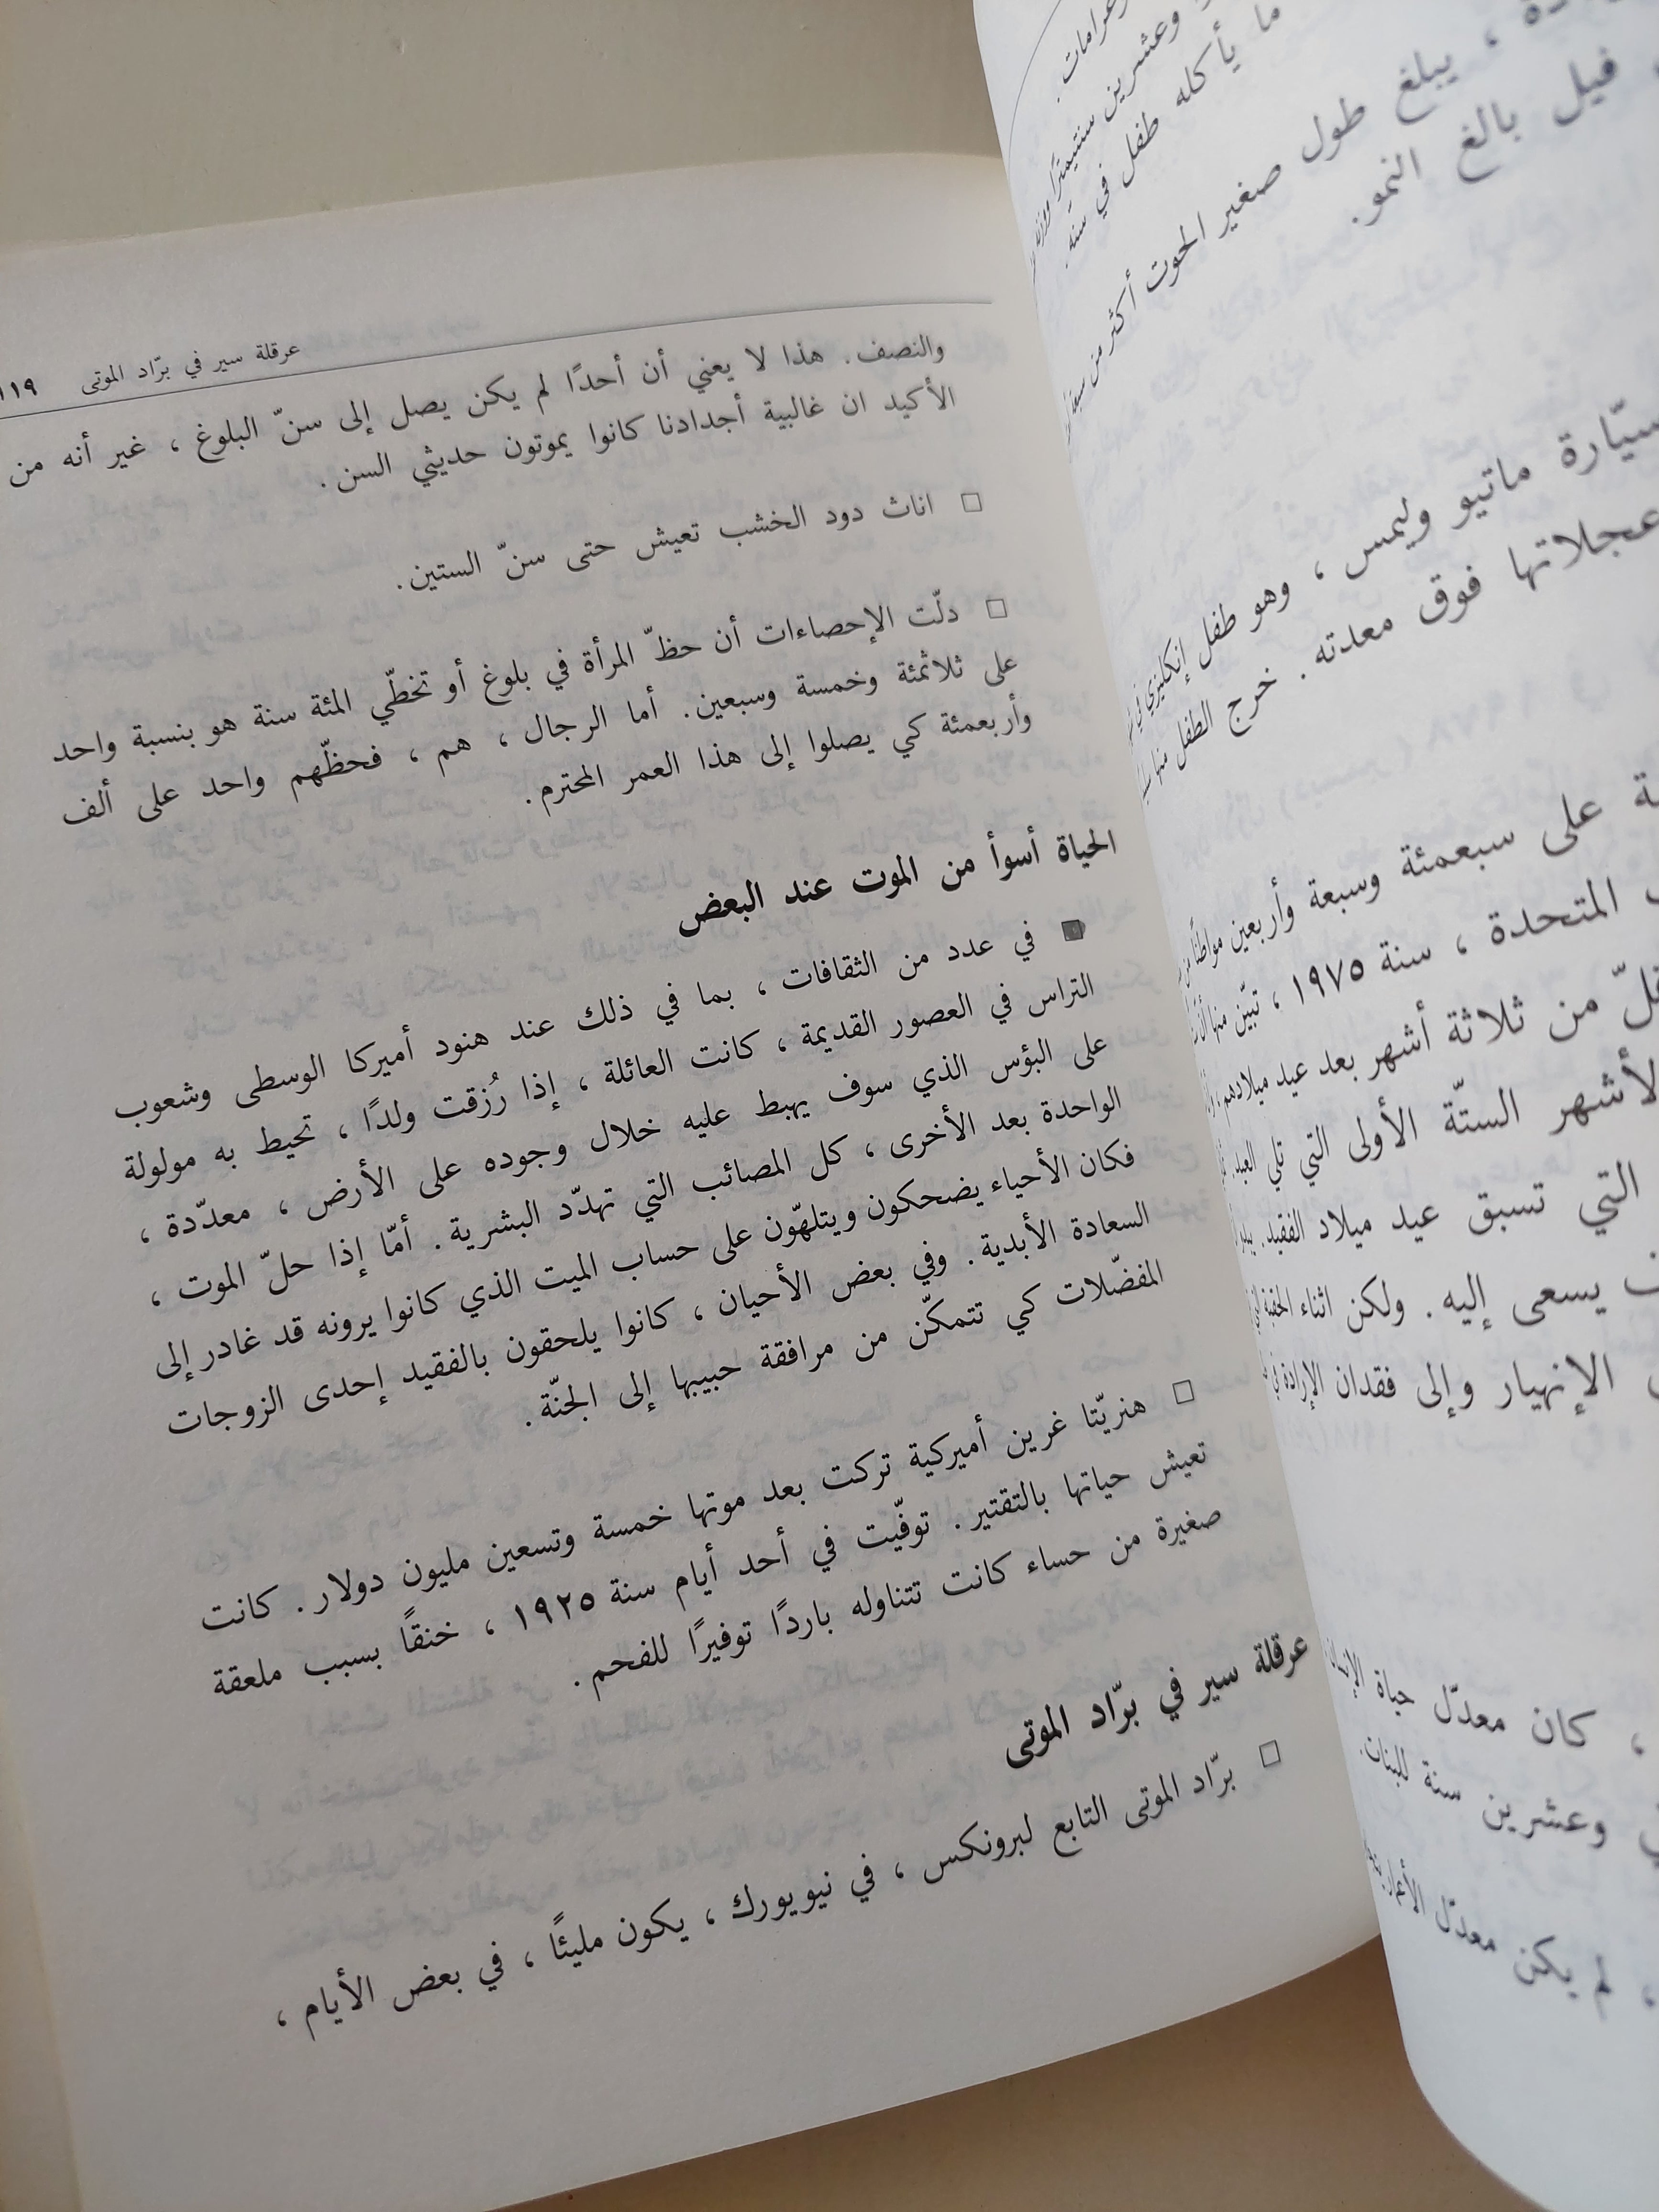 وعشرين سنتيمترًا ووزنه
ما يأكله طفل في سنة.
، يبلغ طول صغير الحوت أكثر من
فيل بالغ النمو.
سيّارة ماتيو وليمس ، وهو طفل إنكليزي في
عجلاتها فوق معدته. خرج الطفل منها
على سبعمئة وسبعة وأربعين مواطنًا من
المتحدة ، سنة ١٩٧٥ ، تبيّن منها
من ثلاثة أشهر بعد عيد ميلادهم ،
الأشهر الستّة الأولى التي تلي العيد.
التي تسبق عيد ميلاد الفقيد.
يسعى إليه. ولكن اثناء الحقبة
الإنهيار وإلى فقدان الإرادة في
، كان معدّل حياة
وعشرين سنة للبنات.
، لم يكن معدّل الأعمار
عرقلة سير في برّاد الموتى ١١٩
والنصف. هذا لا يعني أن أحدًا لم يكن يصل إلى سنّ البلوغ ، غير أنه من
الأكيد ان غالبية أجدادنا كانوا يموتون حديثي السن.
□ اناث دود الخشب تعيش حتى سنّ الستين.
□ دلّت الإحصاءات أن حظّ المرأة في بلوغ أو تخطّي المئة سنة هو بنسبة واحد
على ثلاثمئة وخمسة وسبعين. أما الرجال ، هم ، فحظّهم واحد على ألف
وأربعمئة كي يصلوا إلى هذا العمر المحترم.
الحياة أسوأ من الموت عند البعض
■ في عدد من الثقافات ، بما في ذلك عند هنود أميركا الوسطى وشعوب
التراس في العصور القديمة ، كانت العائلة ، إذا رُزقت ولدًا ، تحيط به مولولة
على البؤس الذي سوف يهبط عليه خلال وجوده على الأرض ، معدّدة ،
الواحدة بعد الأخرى ، كل المصائب التي تهدّد البشرية. أمّا إذا حلّ الموت ،
فكان الأحياء يضحكون ويتلهّون على حساب الميت الذي كانوا يرونه قد غادر إلى
السعادة الأبدية. وفي بعض الأحيان ، كانوا يلحقون بالفقيد إحدى الزوجات
المفضّلات كي تتمكّن من مرافقة حبيبها إلى الجنّة.
□ هنريّتا غرين أميركية تركت بعد موتها خمسة وتسعين مليون دولار. كانت
تعيش حياتها بالتقتير. توفّيت في أحد أيام سنة ١٩٢٥ ، خنقًا بسبب ملعقة
صغيرة من حساء كانت تتناوله باردًا توفيرًا للفحم.
عرقلة سير في برّاد الموتى
□ برّاد الموتى التابع لبرونكس ، في نيويورك ، يكون مليئًا ، في بعض الأيام ،